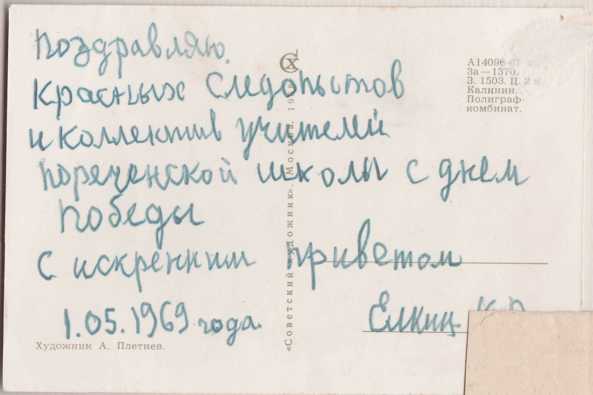 Поздравляю.
Красных следопытов
и коллектив учителей
пореченской школы с днем
победы
С искренним приветом
1.05.1969 года.
Елкин
Художник А. Плетнев.
«Советский художник». Москва. 19
А14096
За — 1370.
З. 1503. Ц. 2
Калинин.
Полиграф-
комбинат.